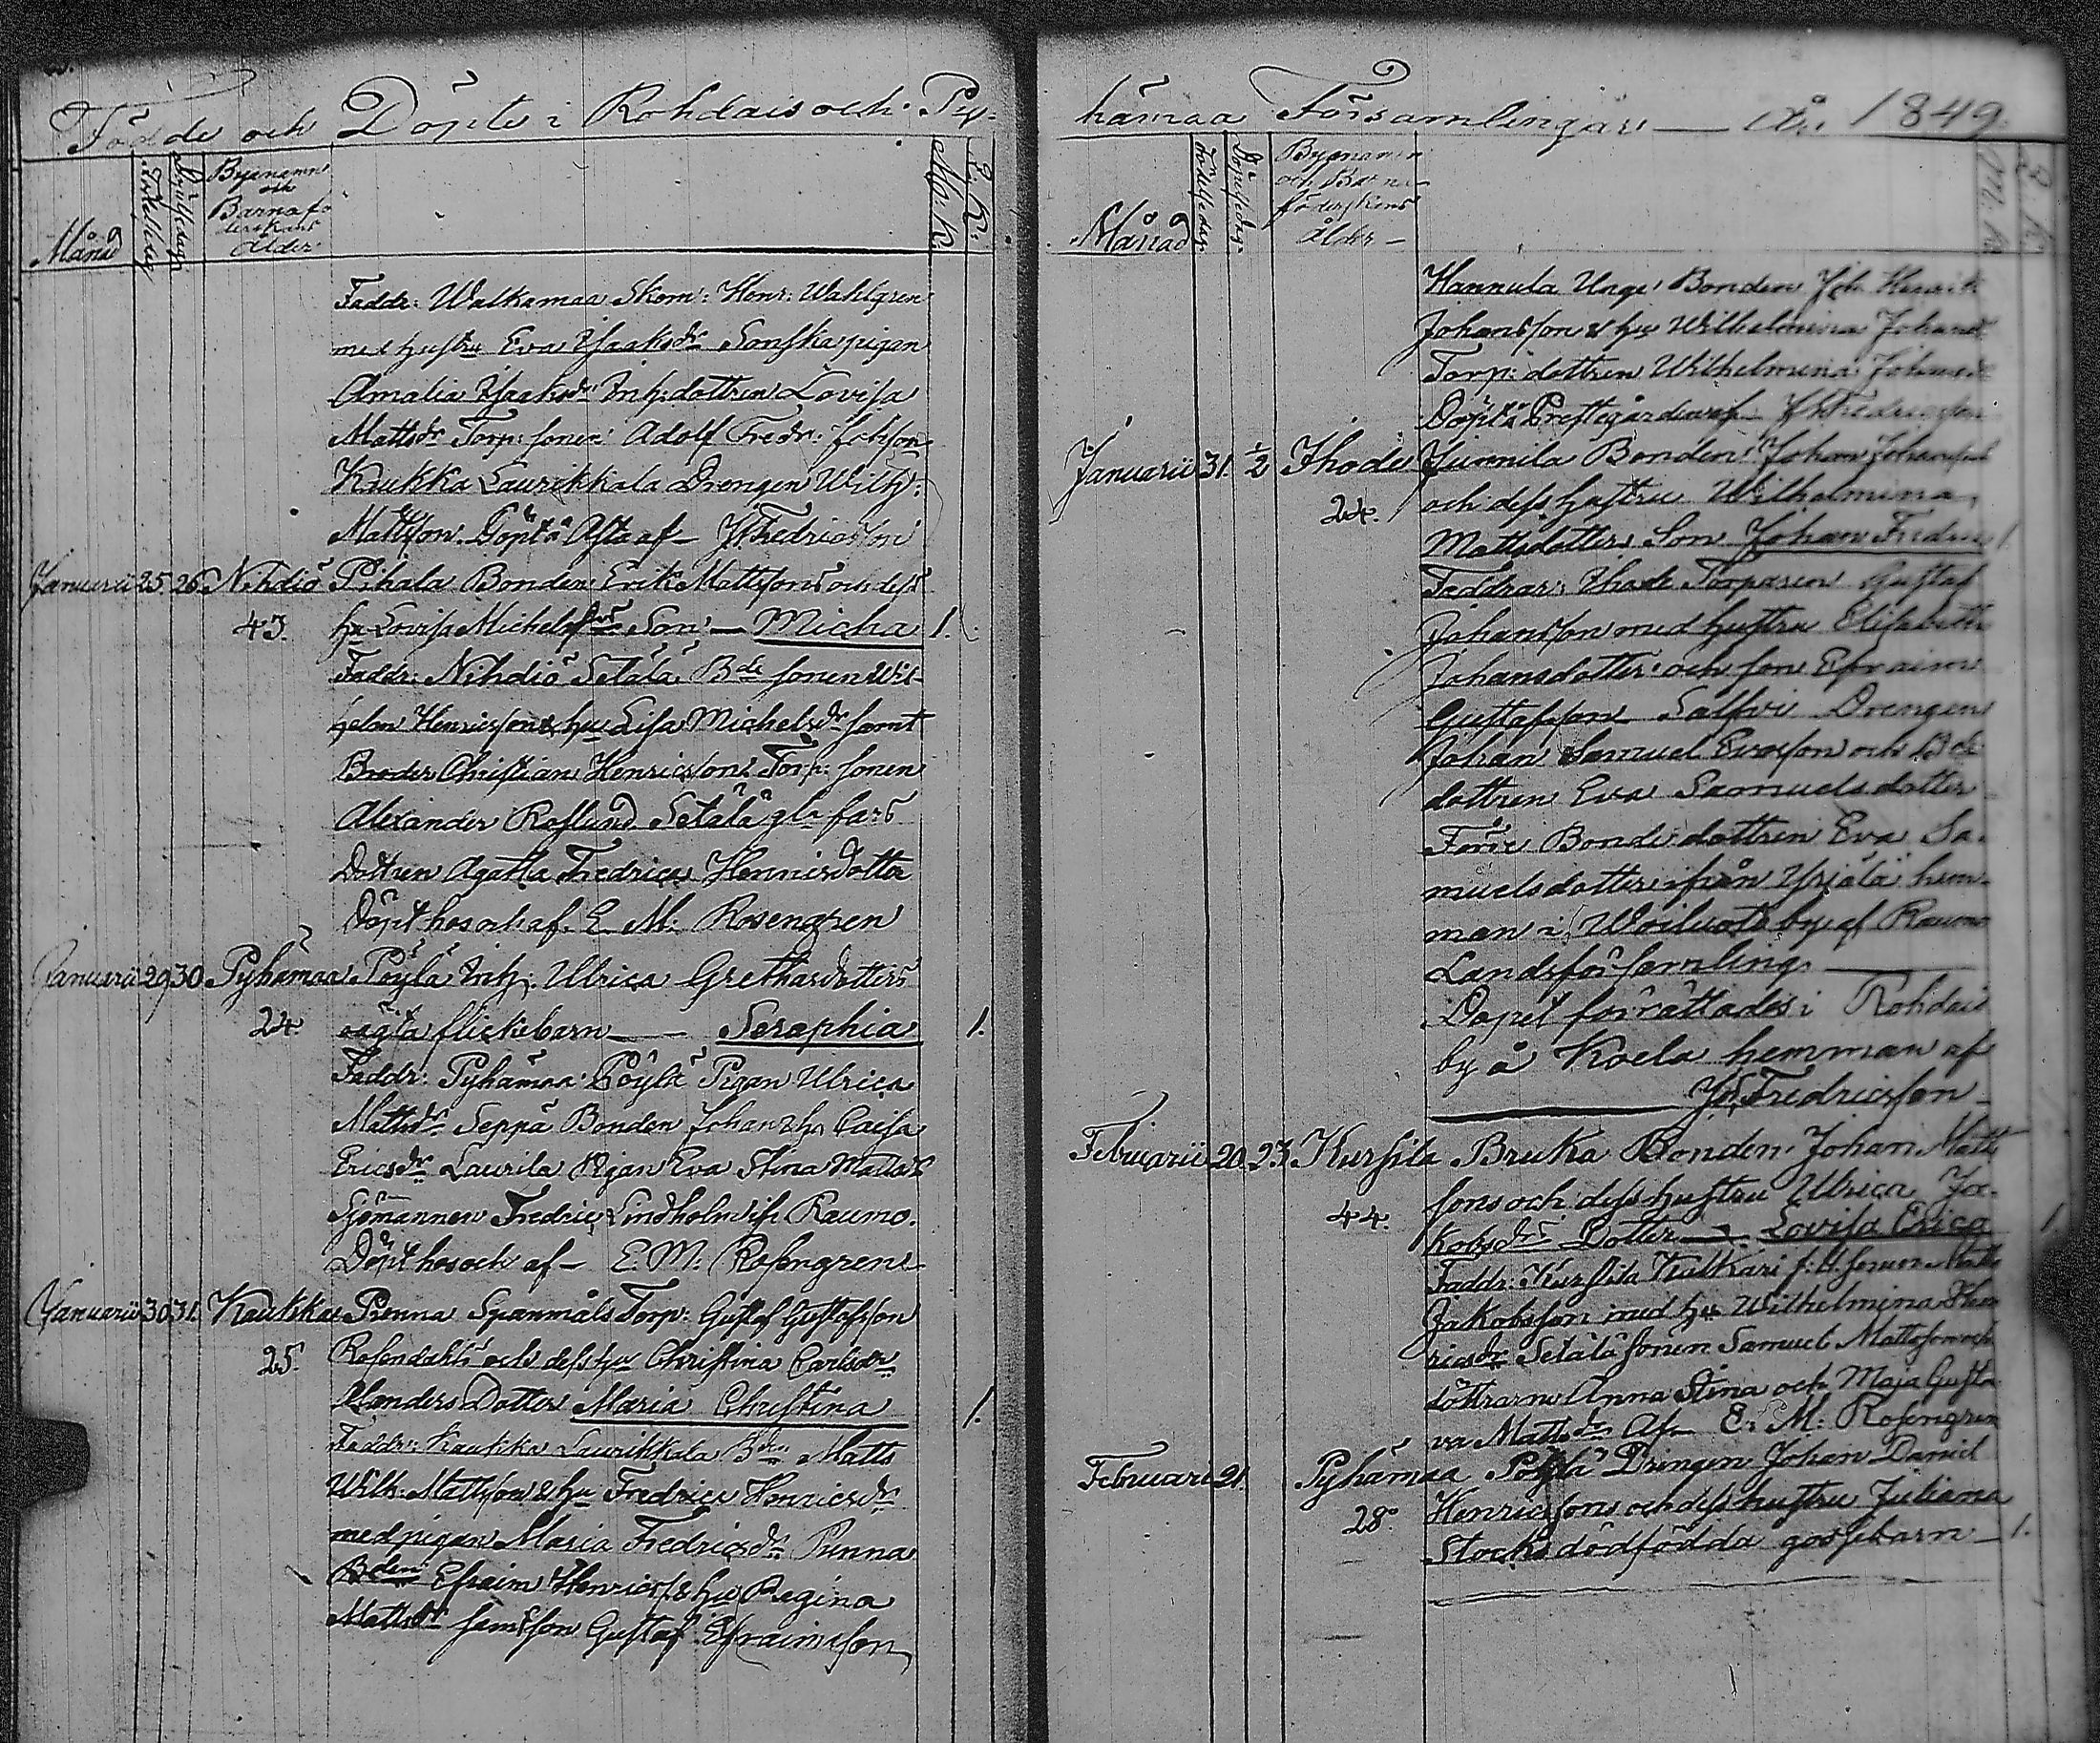 Födde och Döpte i Rohdais och Py-
Månad Födelsedag Döpelsedag Byenamn och Barnaföderskans ålder M.K. Q.K.
Faddr: Walkamaa Skom: Henr: Wahlgren
med hustru Eva Isaksdr Sonska pigan
Amalia Isaksdr Inh: dottren Lovisa
Mattsdr Torp: sonen Adolf Fredr: Johsson
Kaukka Laurikkala Drengen Wilh:
Mattsson. Döpt af J. Fredricsson
Januarii 25 26 Nihdiö Pihala Bonden Erik Mattssons och dess
43. hu Lovisa Michelsdrs Son — Micha 1.
Faddr: Nihdiö Setälä Bde sonen Wil-
helm Henricsson & hu Lisa Michelsdr samt
Broder Christian Henricsson Torp: sonen
Alexander Roslund Setälä gla fars
Dottren Agatha Fredrica Henricsdotter
Döpt hos och af E. M. Rosengren
Januarii 29 30 Pyhämaa Pöylä Inh: Ulrica Grethasdotters
24. oägta flickebarn — Seraphia 1.
Faddr: Pyhämaa Pöylä Pigan Ulrica
Mattsdr Seppä Bonden Johan & hu Caisa
Ericsdr Laurila Pigan Eva Stina Mattsdr
Sjömannen Fredric Lindholm ifr. Raumo.
Döpt hos och af — E. M: Rosengren
Januarii 30 31. Kaukka Punna Spanmåls Torp: Gustaf Gustafsson
25. Rosendahls och dess hu Christina Carlsdr
Dotter Maria Christina 1.
Faddr: Kaukka Laurikkala Bden Matts
Wilh: Mattsson & hu Fredrica Henricsdr
med pigan Maria Fredricsdr Punna
Bden Efraim Henricss & hu Regina
Mattsdr samt son Gustaf Efraimsson
hämaa Församlingar — År 1849.
Månad Födelsedag Döpelsedag Byenamn och Barnaföderskans ålder — M.K. Q.K.
Hannula Unge Bonden Joh Henrik
Johansson & hu Wilhelmina Johansdr
Torp: dottren Wilhelmina Johansdr
Döpt å Prestegården af J. Fredricsson
Januarii 31. ½ Ihode Junnila Bonden Johan Johanssons
24. och dess hustru Wilhelmina
Mattsdotters Son Johan Fredric 1.
Faddrar: Ihode Torparen Gustaf
Johansson med hustru Elisabeth
Johansdotter och son Efraim
Gustafsson Salfvi Drengen
Johan Samuel Evasson och Bde
dottren Eva Samuelsdotter
Förre Bonde dottren Eva Sa-
muelsdotter ifrån Yrjälä hem-
man i Woiluoto by af Raumo
Landsförsamling. —
Döpet förrättades i Rohdais
by å Koela hemman af
J. Fredricsson
Februarii 20. 23. Kursila Bruka Bonden Johan Matts
44. sons och dess hustru Ulrica Ja-
kobsdrs Dotter — Lovisa Erica 1.
Faddr: Kursila Kalkari sonen Matts
Jakobsson med hu Wilhelmina Hen
ricsdr Setälä sonen Samuel Mattsson och
döttrarne Anna Stina och Maja Gusta-
va Mattsdr Af E. M: Rosengren
Februari 21. Pyhämaa Pöylä Drengen Johan Daniel
28. Henricssons och dess hustru Juliana
Stocks dödfödda gossebarn — 1.